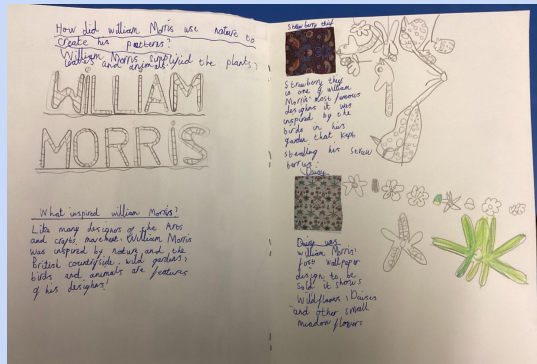 How did william Morris use nature to
create his patterns?
William Morris simplified the plants,
and animals.
WILLIAM
MORRIS
What inspired william Morris?
Like many designers of the Arts
and crafts movement, William Morris
was inspired by nature and the
British countryside. wild gardens,
birds and animals are features
of his designs!
Strawberry thief
Strawberry theif
is one of william
Morris' most famous
designs it was
inspired by the
birds in his
garden that kept
stealing his straw
berrys.
Daisy
Daisy was
william Morris'
first wallpaper
design to be
sold it shows
wildflowers, Daisies
and other small
meadow flowers